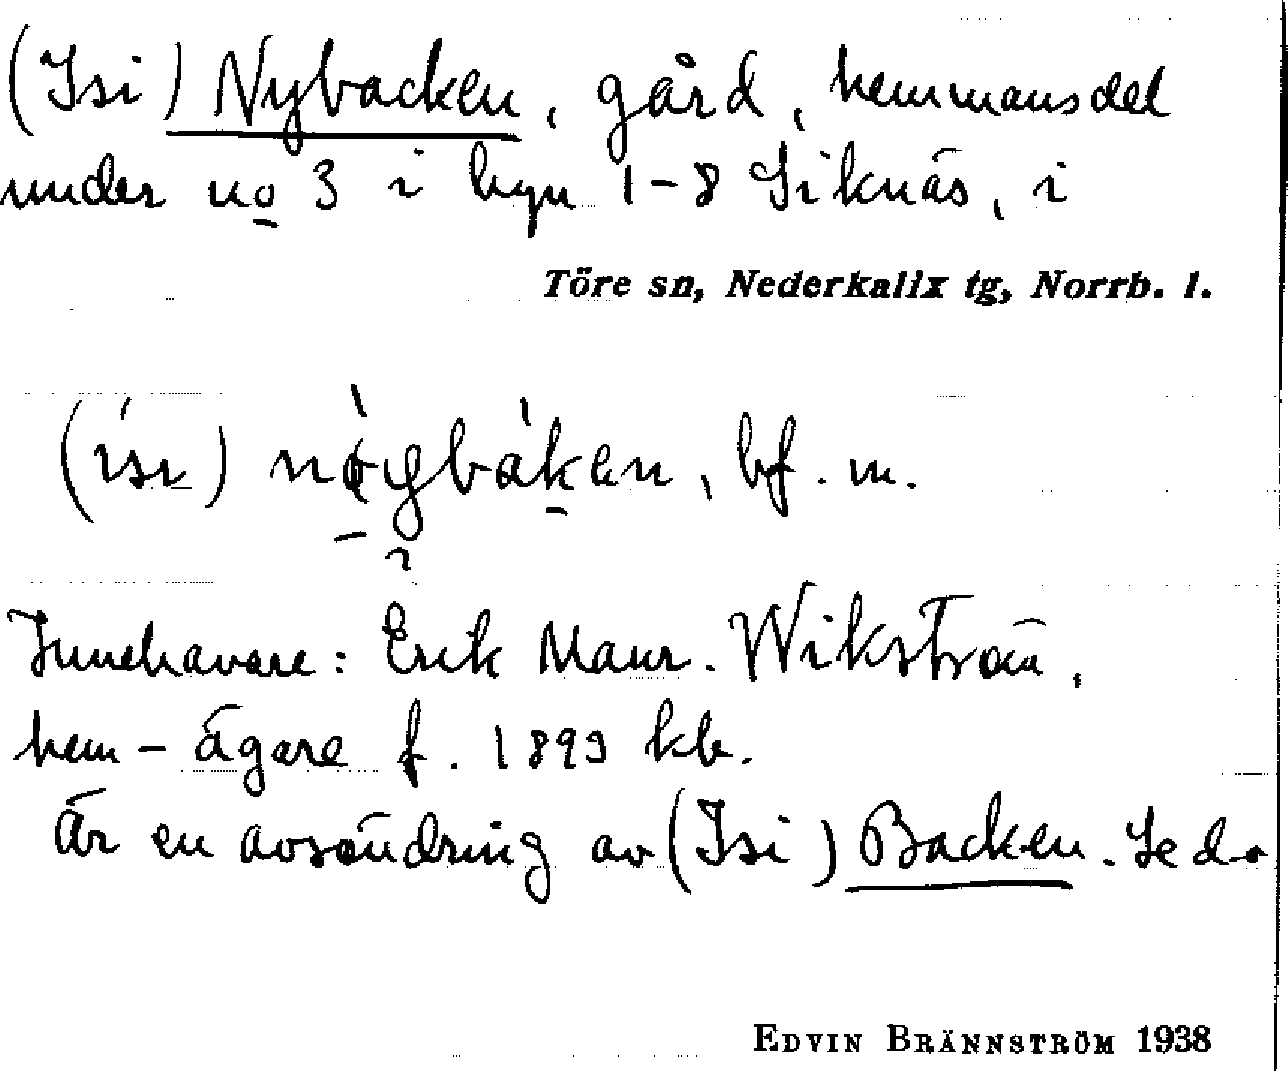 (Isi) Nybacken, gård, hemmansdel
under no 3 i byn 1-8 Siknäs, i
Töre sn, Nederkalix tg, Norrb. l.
bf. m.
Innehavare: Erik Maur. Wikström,
hem-ägare f. 1893 kb.
Är en avsöndring av (Isi) Backen. Se do
EDVIN BRÄNNSTRÖM 1938